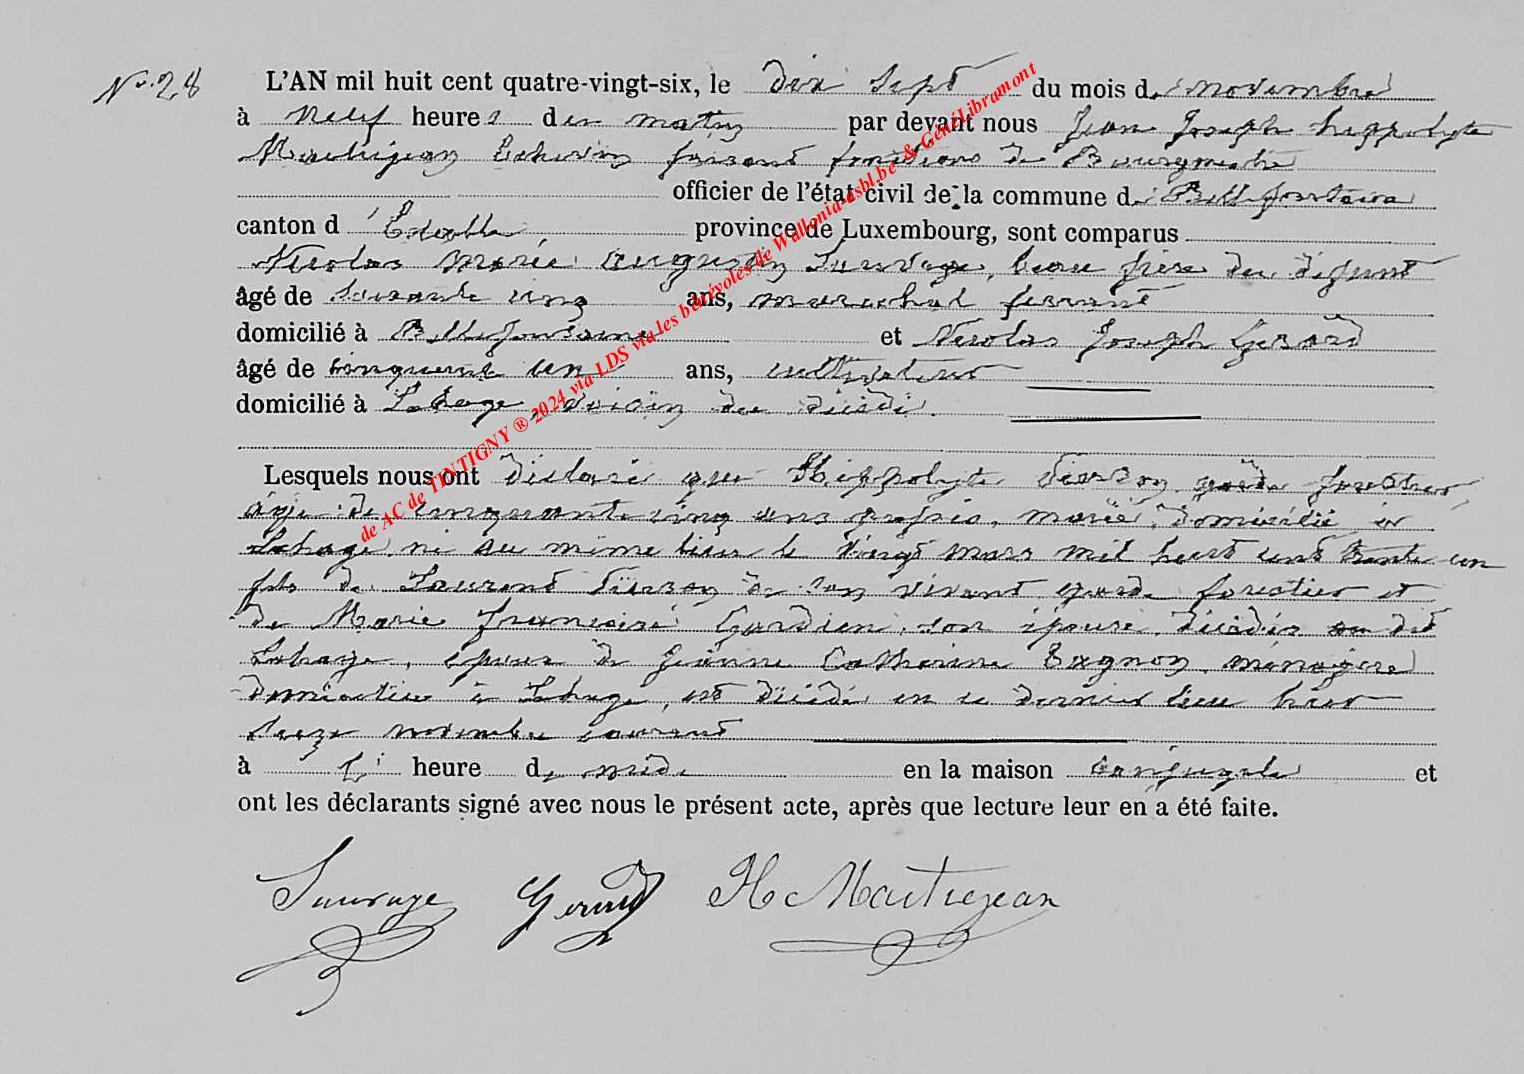 N°. 28
L'AN mil huit cent quatre-vingt-six, le dix sept du mois de novembre
à Neuf heures du matin par devant nous Jean Joseph hippolyte
Maitrejean Echevin faisant fonctions de Bourgmestre
officier de l'état civil de la commune de Bellefontaine
canton d'Etalle, province de Luxembourg, sont comparus
Nicolas Marie Sauvage, beau frère du défunt
âgé de soixante cinq ans, marechal ferrant
domicilié à Bellefontaine et Nicolas Joseph Gerard
âgé de cinquante ans, cultivateur
domicilié à Lahage, voisin du décédé.
Lesquels nous ont déclaré que Hippolyte Pierson garde forestier
âgé de cinquante cinq ans passés, marié, domicilié à
Lahage, né au même lieu le vingt mars mil huit cent trente un
fils de Laurent Pierson de son vivant garde forestier et
de Marie françoise Gardien, son épouse, décédés au dit
Lahage, époux de Jeanne Catherine ménagère
domiciliée à Lahage, est décédé en ce dernier lieu hier
seize novembre courant
à heure de midi en la maison conjugale et
ont les déclarants signé avec nous le présent acte, après que lecture leur en a été faite.
Sauvage Gerard H Maitrejean
de AC de TINTIGNY ® 2024 via LDS via les bénévoles de Wallonia-asbl.be & GénéLibramont